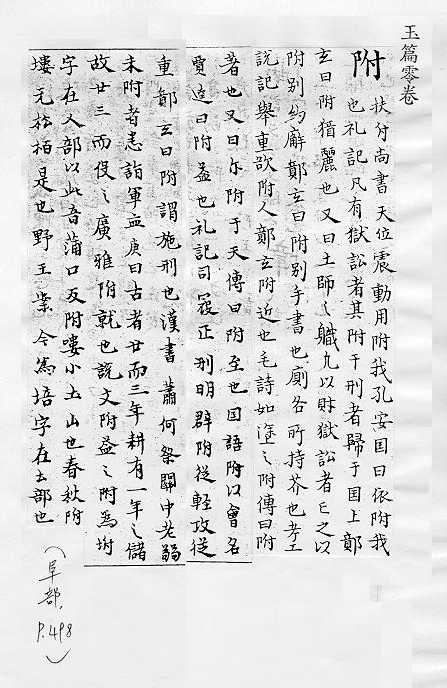 玉篇零卷
附 扶付尚書天位震動用附我孔安国曰依附我
也礼記凡有獄訟者其附于刑者歸于国上鄭
玄曰附猶麗也又曰土師之職凡以財獄訟者正之以
附别約癖鄭玄曰附别手書也廁各所持芥也考工
説記舉重欲附人鄭玄附近也毛詩如塗之附傳曰附
著也又曰尓附于天傳曰附至也国語附以會名
賈逵曰附益也礼記司寇正刑明辟附従輕攻従
重鄭玄曰附謂施刑也漢書蕭何祭關中老弱
未附者悉詣軍血庚曰古者廿而三年耕有一年之儲
故廿三而伇之廣雅附就也説文附益之附為坿
字在人部以此吾蒲口反附嘍小土山也春秋附
塿无松柏是也野王案今為培字在土部也
(阜部, P.498)